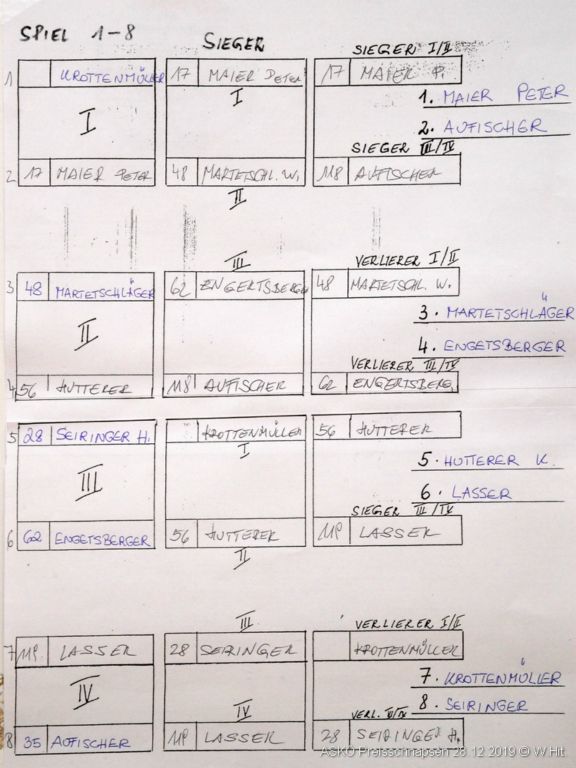 SPIEL 1-8
SIEGER
SIEGER I/II
1 KROTTENMÜLLER
17 MAIER PETER
17 MAIER P.
I
I
1. MAIER PETER
2. AUFISCHER
SIEGER III/IV
2 17 MAIER PETER
48 MARTETSCHL. W.
118 AUFISCHER
II
III
VERLIERER I/II
3 48 MARTETSCHLÄGER
62 ENGERTSBERGER
48 MARTETSCHL. W.
II
3. MARTETSCHLÄGER
4. ENGETSBERGER
VERLIERER III/IV
4 56 HUTTERER
118 AUFISCHER
62 ENGERTSBERG.
5 28 SEIRINGER H.
KROTTENMÜLLER
56 HUTTERER
I
III
5. HUTTERER K.
6. LASSER
SIEGER III/IV
6 62 ENGETSBERGER
56 HUTTERER
119 LASSER
II
III
VERLIERER I/II
7 119 LASSER
28 SEIRINGER
KROTTENMÜLLER
IV
7. KROTTENMÜLLER
8. SEIRINGER
IV
VERL. III/IV
8 35 AUFISCHER
119 LASSER
28 SEIRINGER H.
ASKÖ Preisschnapsen 28.12.2019 © W.Hit